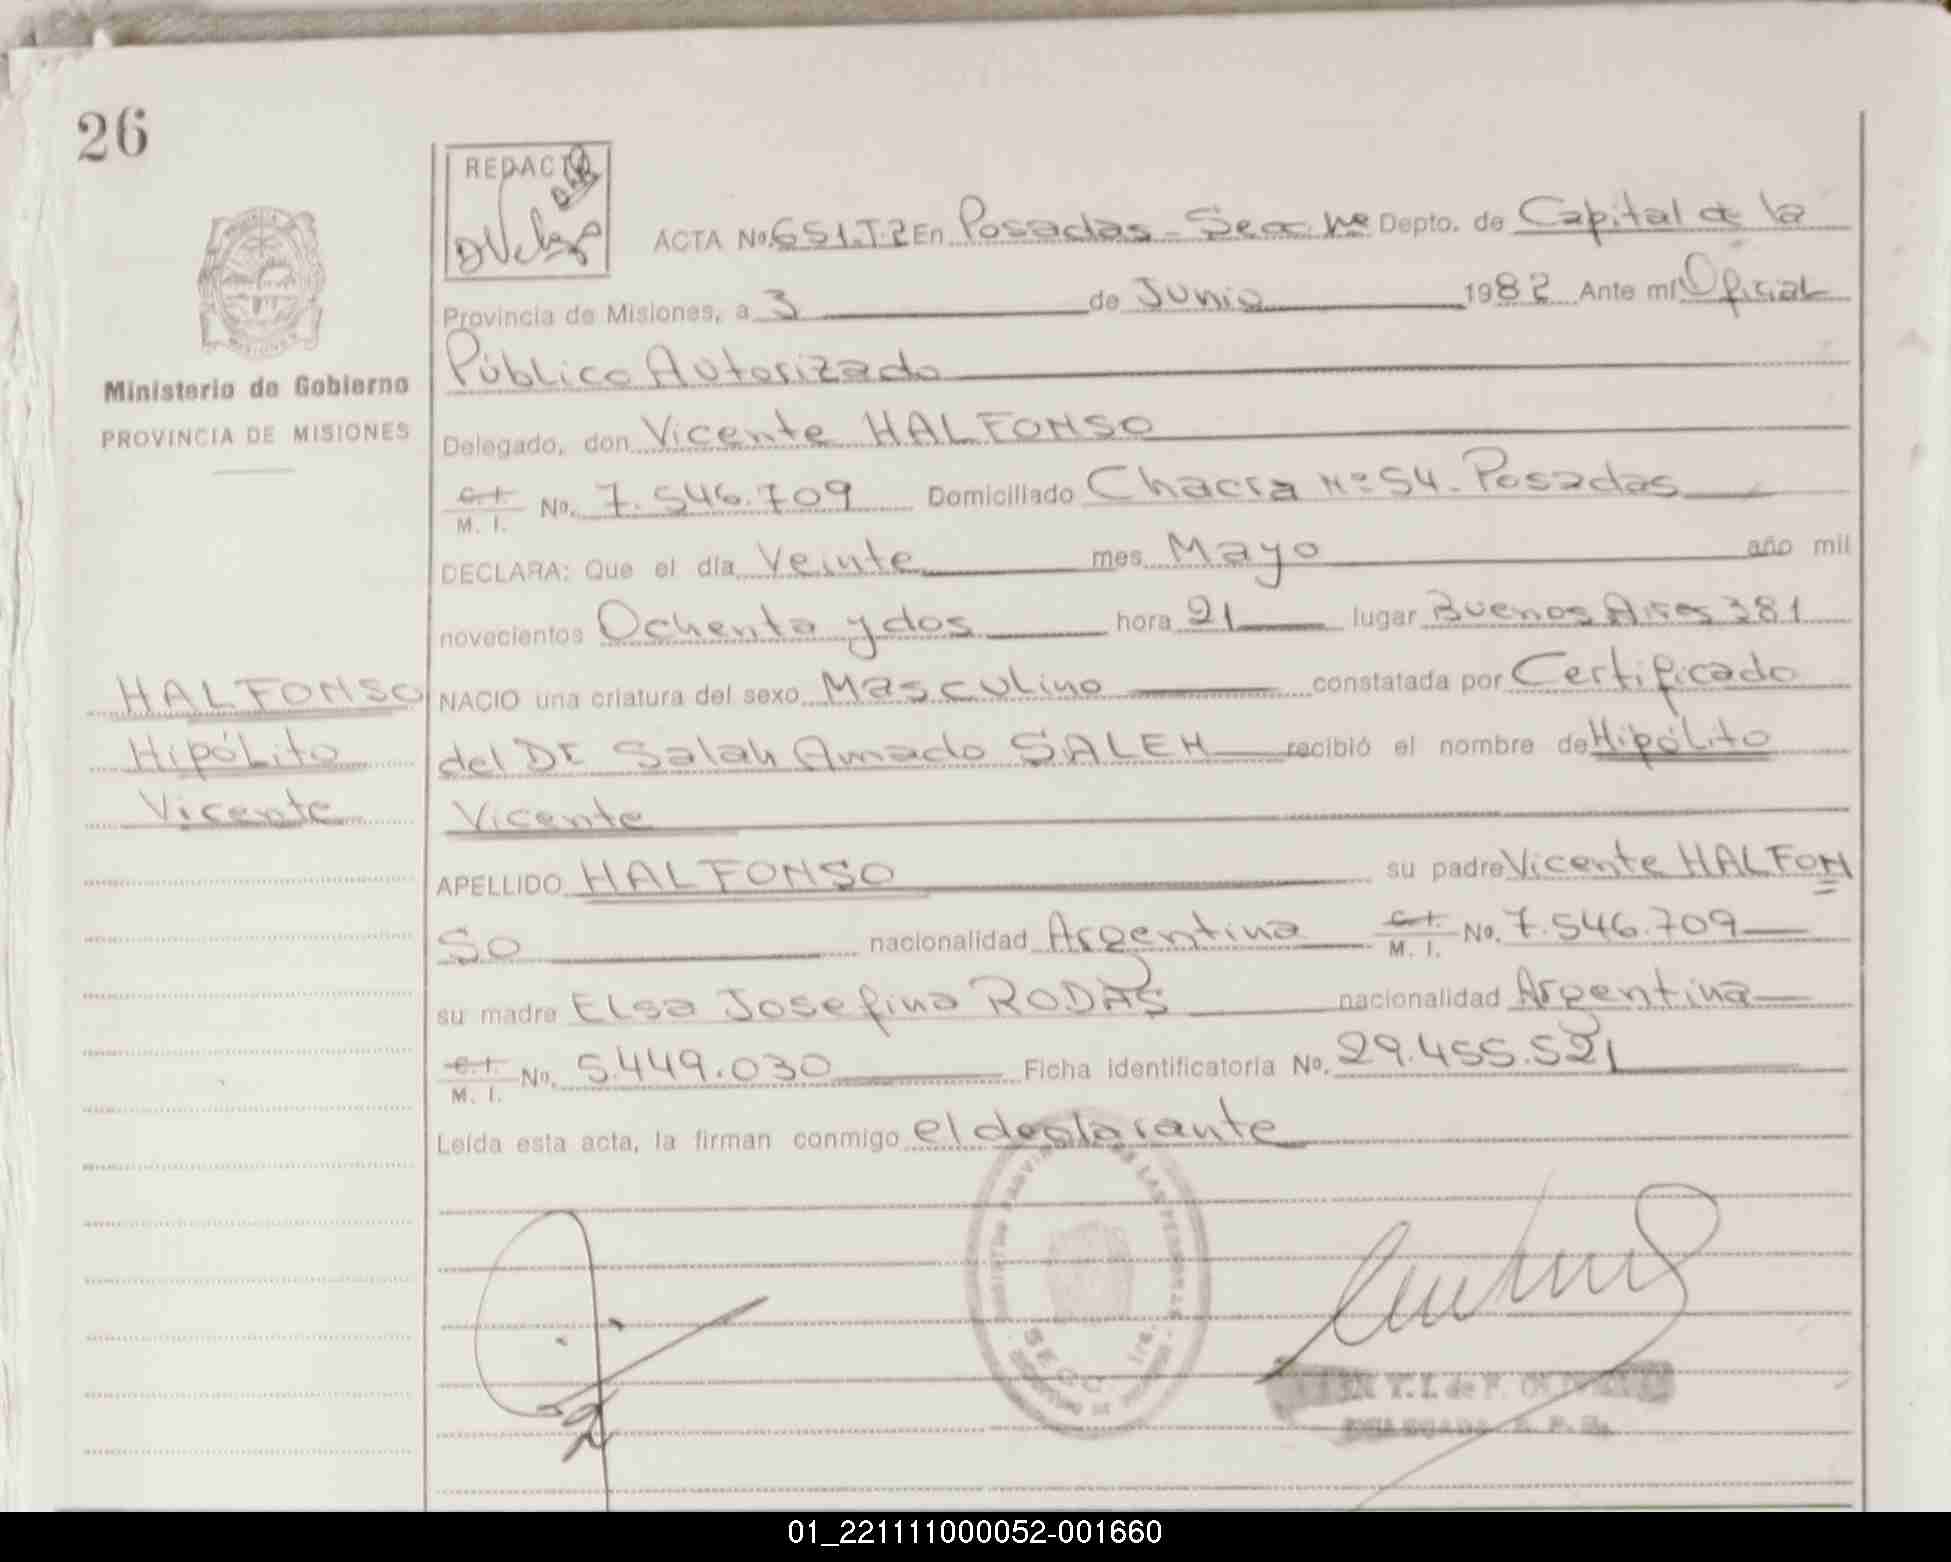 26
REDACTÓ
ACTA No. 651.T.2 En Posadas - Secc. 1ra Depto. de Capital de la
Provincia de Misiones, a 3 de Junio 1982 Ante mí Oficial
Público Autorizado
Ministerio de Gobierno
PROVINCIA DE MISIONES
Delegado, don Vicente HALFONSO
C.I. M. I. No. 7.546.709 Domiciliado Chacra Nº 54 - Posadas
DECLARA: Que el día Veinte mes Mayo año mil
novecientos Ochenta y dos hora 21 lugar Buenos Aires 381
HALFONSO
Hipólito
Vicente
NACIO una criatura del sexo Masculino constatada por Certificado
del Dr Salah Amado SALEH recibió el nombre de Hipólito
Vicente
APELLIDO HALFONSO su padre Vicente HALFON
SO nacionalidad Argentina C.I. M. I. No. 7.546.709
su madre Elsa Josefina RODAS nacionalidad Argentina
C.I. M. I. No. 5.449.030 Ficha identificatoria No. 29.455.521
Leída esta acta, la firman conmigo el declarante
SECC. 1ra.
01_221111000052-001660